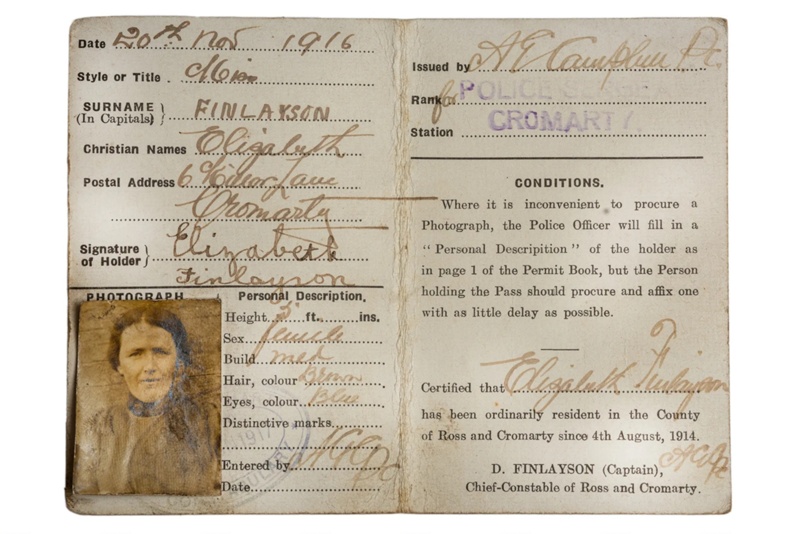 Date 20th Nov 1916
Style or Title. Miss
SURNAME
(In Capitals) } FINLAYSON
Christian Names Elizabeth
Postal Address 6 Lane
Cromarty
Signature
of Holder } Elizabeth
Finlayson
PHOTOGRAPH
Personal Description,
Height 5 ft. ins.
Sex female
Build med
Hair, colour Brown
Eyes, colour Blue
Distinctive marks
1917
Entered by
Date
Issued by A E Campbell P.C.
Rank for POLICE
Station CROMARTY.
CONDITIONS.
Where it is inconvenient to procure a
Photograph, the Police Officer will fill in a
“Personal Descripition” of the holder as
in page 1 of the Permit Book, but the Person
holding the Pass should procure and affix one
with as little delay as possible.
Certified that Elizabeth Finlayson
has been ordinarily resident in the County
of Ross and Cromarty since 4th August, 1914.
D. FINLAYSON (Captain),
Chief-Constable of Ross and Cromarty.